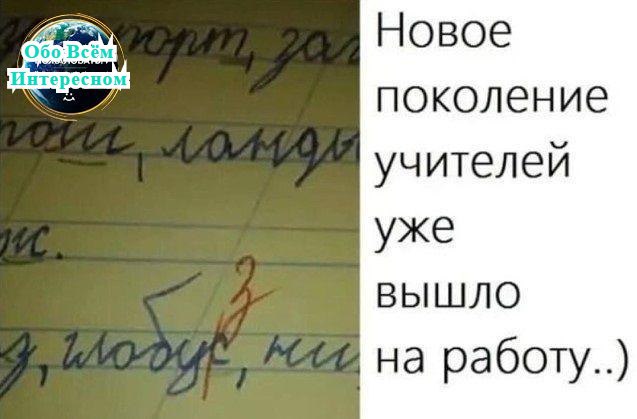 Обо Всём
Интересном
порт, заг
ош, ланды
ж.
з
з, глобус, ни
Новое
поколение
учителей
уже
вышло
на работу..)